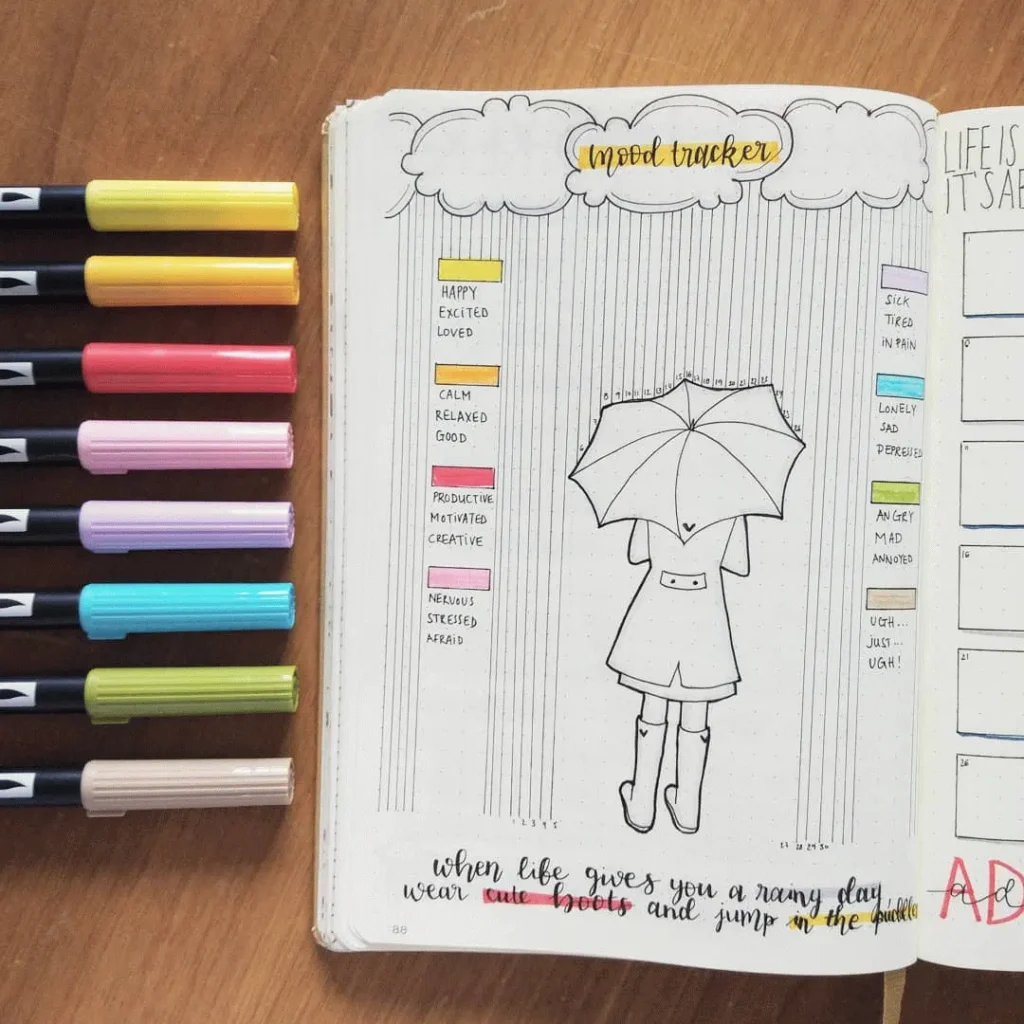 mood tracker
HAPPY
EXCITED
LOVED
CALM
RELAXED
GOOD
PRODUCTIVE
MOTIVATED
CREATIVE
NERVOUS
STRESSED
AFRAID
SICK
TIRED
IN PAIN
LONELY
SAD
DEPRESSED
ANGRY
MAD
ANNOYED
UGH...
JUST...
UGH!
6 7 8 9 10 11 12 13 14 15 16 17 18 19 20 21 22 23 24 25 26
1 2 3 4 5
27 28 29 30
when life gives you a rainy day
wear cute boots and jump in the puddles
88
LIFE IS
IT'S AB
1
16
21
26
AD